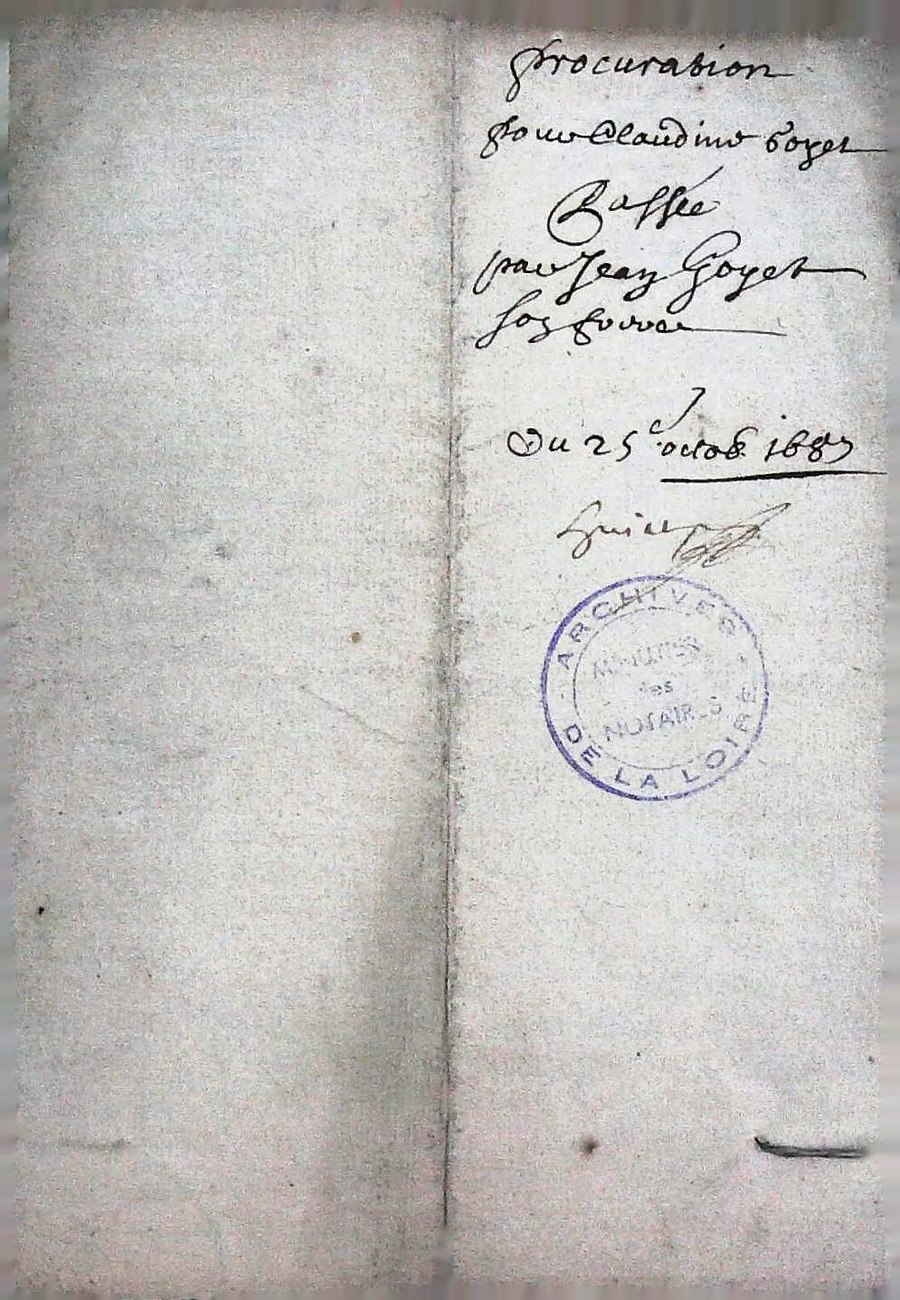 procuration
pour Claudine Goyet
Passée
par Jean Goyet
son frere
Du 25e octob. 1687
ARCHIVES
MINUTES
des
NOTAIRES
DE LA LOIRE